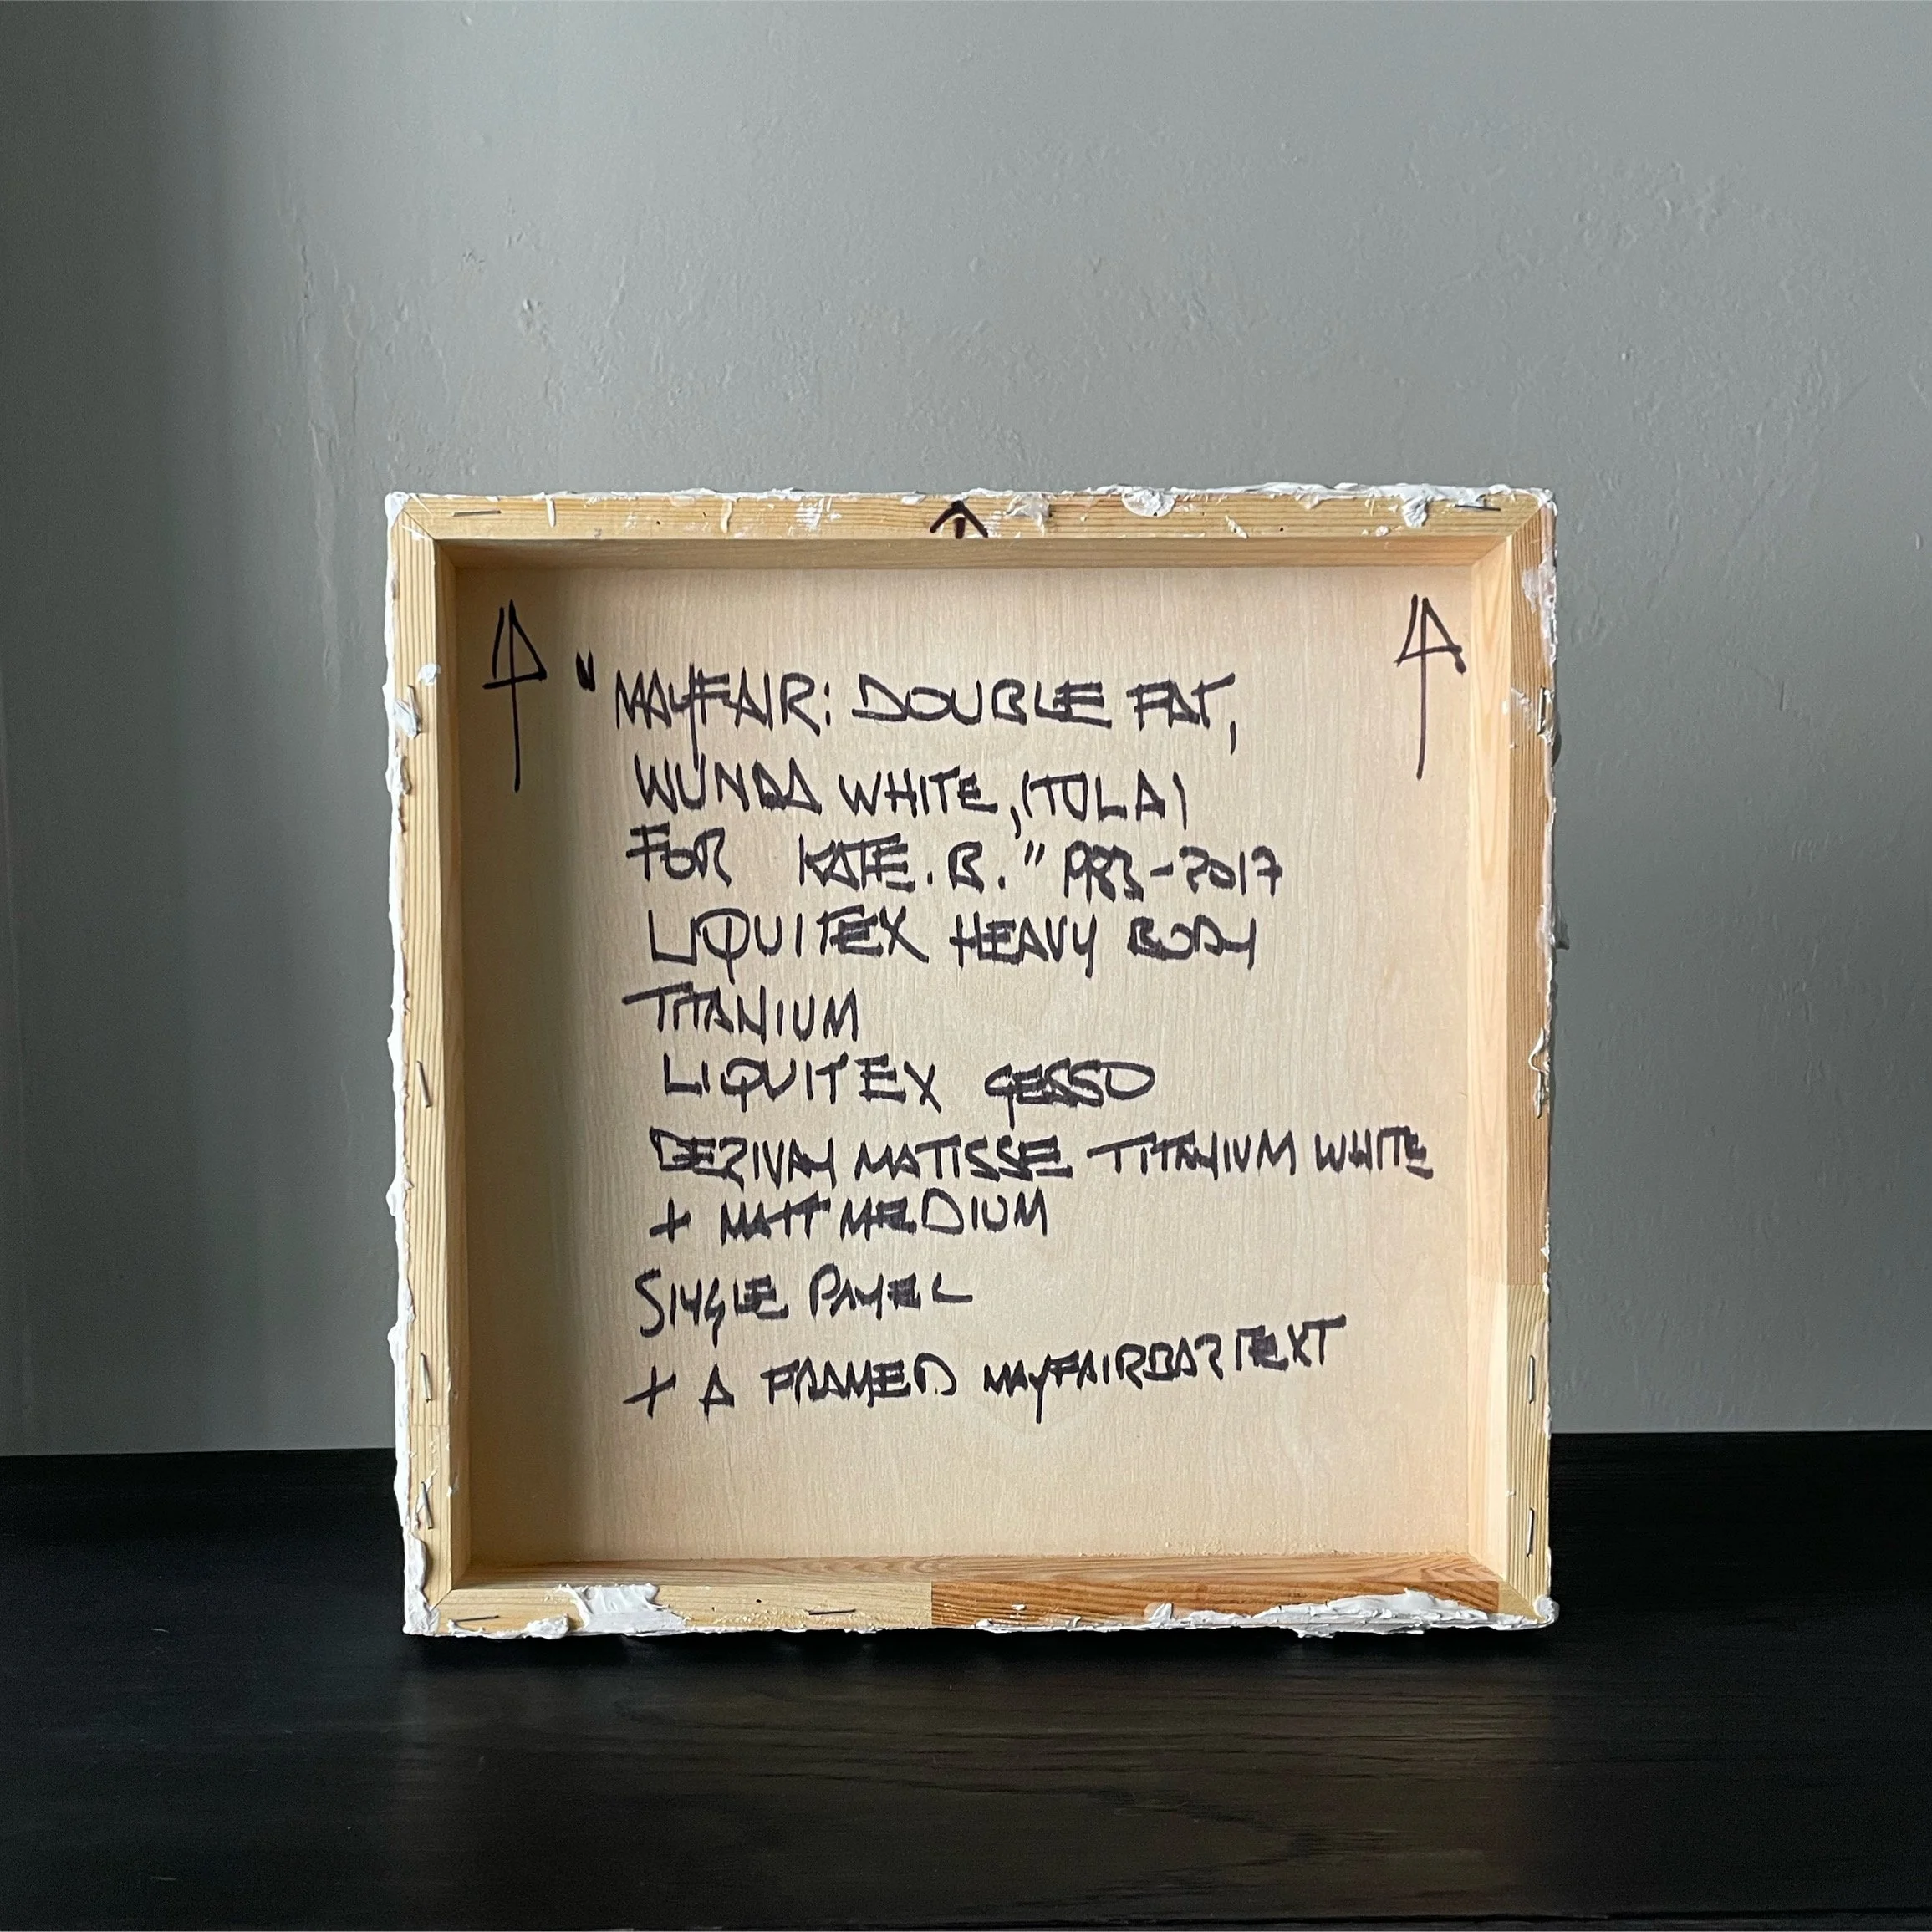 "MAYFAIR: DOUBLE FAT,
WUNDA WHITE, (TOLA)
FOR KATE. B." 1983-2017
LIQUITEX HEAVY BODY
TITANIUM
LIQUITEX GESSO
DERIVAN MATISSE TITANIUM WHITE
+ MATT MEDIUM
SINGLE PANEL
+ A FRAMED MAYFAIRBARTEXT